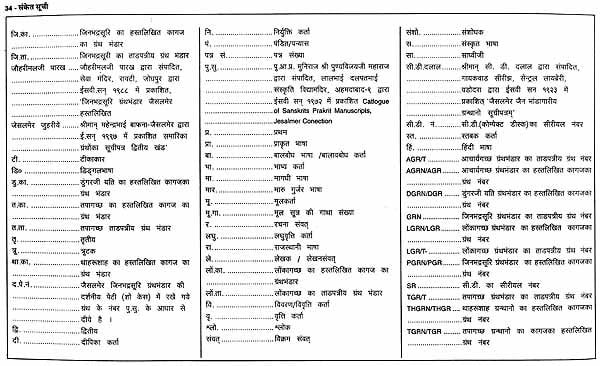 34 - संकेत सूची
जि.का. ............ जिनभद्रसूरि का हस्तलिखित कागज
का ग्रंथ भंडार
जि.ता. ............ जिनभद्रसूरी का ताडपत्रीय ग्रंथ भंडार
जौहरीमलजी पारख .... जौहरीमलजी पारख द्वारा संपादित,
सेवा मंदिर, रावटी, जोधपुर द्वारा
ईसवी.सन् १९८८ में प्रकाशित,
'जिनभद्रसूरि ग्रंथभंडार जैसलमेर
हस्तलिखित
जैसलमेर जुहरीये ..... श्रीमान् महेन्द्रभाई बाफना-जैसलमेर द्वारा
ई.सन् १९९७ में प्रकाशित समारिका
ग्रंथोका सूचीपत्र द्वितीय खंड'
टी. ............ टीकाकार
डिं० ............ डिङ्गलभाषा
डु.का. ............ डुंगरजी यति का हस्तलिखित कागजका
ग्रंथ भंडार
त.का. ............ तपागच्छ का हस्तलिखित कागज का
ग्रंथ भंडार
त.ता. ............ तपागच्छ ताडपत्रीय ग्रंथ भंडार
तृ. ............ तृतीय
त्रू. ............ त्रूटक
था.का. ............ थाहरूशाह का हस्तलिखित कागज का
ग्रंथ भंडार
द.पे.नं. ............ जैसलमेर जिनभद्रसूरि ग्रंथभंडार की
दर्शनीय पेटी (शो केस) में रखे गये
ग्रंथ के नंबर पु.सु. के आधार से
दीये है ।
द्वि. ............ द्वितीय
दी. ............ दीपिका कर्ता
नि. ............ निर्युक्ति कर्ता
पं. ............ पंडित/पन्यास
पत्र सं. ............ पत्र संख्या
पु.सु. ............ पू.आ.प्र. मुनिराज श्री पुण्यविजयजी महाराज
द्वारा संपादित, लालभाई दलपतभाई
संस्कृति विद्यामंदिर, अहमदाबाद-९ द्वारा
ईसवी सन् १९७२ में प्रकाशित Catlogue
of Sanskrits Prakrit Manuscripts,
Jesalmer Conection
प्र. ............ प्रथम
प्रा. ............ प्राकृत भाषा
बा. ............ बालबोध भाषा /बालावबोध कर्ता
भा. ............ भाष्य कर्ता
मा. ............ मागधी भाषा
मार. ............ मारु गुर्जर भाषा
मू. ............ मूलकर्ता
मू.गा. ............ मूल सूत्र की गाथा संख्या
र. ............ रचना संवत्
लघु. ............ लघुवृत्ति कर्ता
रा. ............ राजस्थानी भाषा
ले. ............ लेखक / लेखनसंवत्
लों.का. ............ लोंकागच्छ का हस्तलिखित कागज का
ग्रंथभंडार
लों.ता. ............ लोंकागच्छ का ताडपत्रीय ग्रंथ भंडार
वि. ............ विवरण/विवृति कर्ता
वृ. ............ वृत्ति कर्ता
श्लो. ............ श्लोक
संवत् ............ विक्रम संवत्
संशो. ............ संशोधक
सं. ............ संस्कृत भाषा
सा. ............ साध्वीजी
सी.डी.दलाल ........ श्रीमान् सी. डी. दलाल द्वारा संपादित,
गायकवाड सीरीझ, सेन्ट्रल लायब्रेरी,
वडोदरा द्वारा ईसवी सन् १९२३ में
प्रकाशित 'जेसलमेर जैन भांडागारीय
ग्रन्थानो सूचीपत्रम्'
सी.डी. नं. ............ सी.डी.(कोम्पेक्ट डीस्क)का सीरीयल नंबर
स्त. ............ स्तबक कर्ता
हिं. ............ हिंदी भाषा
AGR/T ............ आचार्यगच्छ ग्रंथभंडार का ताडपत्रीय ग्रंथ नंबर
AGRN/AGR ............ आचार्यगच्छ ग्रंथभंडार का हस्तलिखित कागजका
ग्रंथ नंबर
DGRN/DGR ............ डुंगरजी यति ग्रंथभंडार का हस्तलिखित कागजका
ग्रंथ नंबर
GRN ............ जिनभद्रसूरि ग्रंथभंडार का ताडपत्रीय ग्रंथ नंबर
LGRN/LGR ............ लोंकागच्छ ग्रंथभंडार का हस्तलिखित कागजका
ग्रंथ नंबर
LGR/T- ............ लोंकागच्छ ग्रंथभंडार का ताडपत्रीय ग्रंथ नंबर
PGRN/PGR ............ जिनभद्रसूरि ग्रंथभंडार का हस्तलिखित कागजका
ग्रंथ नंबर
SR ............ सी.डी. का सीरीयल नंबर
TGR/T ............ तपागच्छ ग्रंथभंडार का ताडपत्रीय ग्रंथ नंबर
THGRN/THGR ..... थाहरूशाह ग्रन्थानो का कागजका हस्तलिखित
ग्रंथ नंबर
TGRN/TGR ............ तपागच्छ ग्रन्थानो का कागजका हस्तलिखित
ग्रंथ नंबर